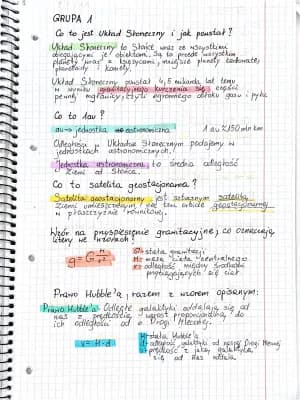 GRUPA 1
Co to jest Układ Słoneczny i jak powstał?
Układ Słoneczny to Słońce wraz ze wszystkimi
obiegającymi je obiektami. Są to przede wszystkim
planety wraz z księżycami, mniejsze planety karłowate,
planetoidy i komety.
Układ Słoneczny powstał 4,5 miliarda lat temu
w wyniku grawitacyjnego kurczenia się części
pewnej mgławicy, czyli ogromnego obłoku gazu i pyłu
Co to 1au?
au → jednostka astronomiczna 1au ≈ 150 mln km
Odległości w Układzie Słonecznym podajemy w
jednostkach astronomicznych.
Jednostka astronomiczna to średnia odległość
Ziemi od Słońca.
Co to satelita geostacjonarna?
Satelita geostacjonarny jest sztucznym satelitą
Ziemi umieszczonym na orbicie geostacjonarnej
w płaszczyźnie równikowej.
Wzór na przyspieszenie grawitacyjne, co oznaczają
litery we wzorkach?
g = G M/r²
G - stała grawitacji
M - masa ciała centralnego
r - odległość między środkami
przyciągających się ciał
Prawo Hubble'a, razem z wzorem opisanym:
Prawo Hubble'a: Odległe galaktyki oddalają się od
nas z prędkością wprost proporcjonalną do
ich odległości od Drogi Mlecznej.
v = H · d
H - stała Hubble'a
d - odległość galaktyki od naszej Drogi Mlecznej
v - prędkość z jaką galaktyka
się od nas oddala